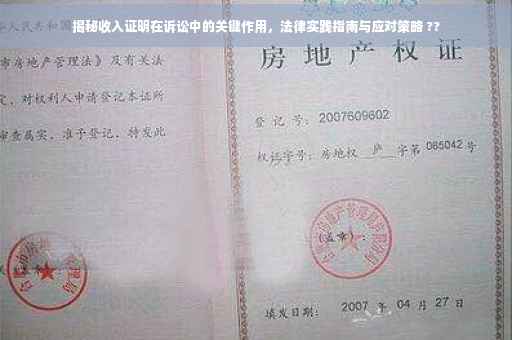 揭秘收入证明在诉讼中的关键作用，法律实践指南与应对策略 ??
人民共和国
市房地产管理法》及有关
定，对权利人申请登记本证所
审查属实，准予登记，特发此
房地产权证
登 记 号： 2007609602
权证字号：房地权 庐 字第 065042 号
（盖章）：
填发日期： 2007 年 04 月 27 日